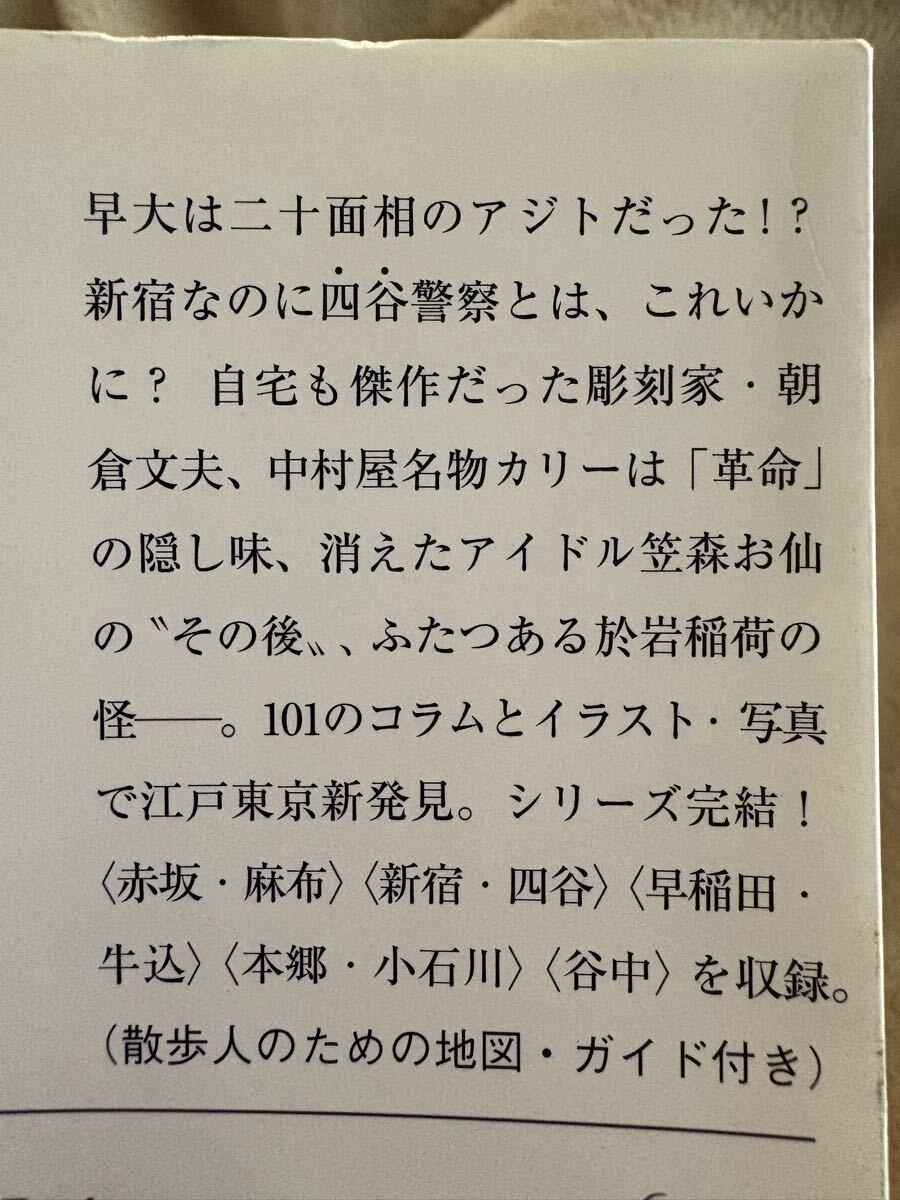 早大は二十面相のアジトだった!?
新宿なのに四谷警察とは、これいか
に? 自宅も傑作だった彫刻家・朝
倉文夫、中村屋名物カリーは「革命」
の隠し味、消えたアイドル笠森お仙
の〝その後〟、ふたつある於岩稲荷の
怪――。101のコラムとイラスト・写真
で江戸東京新発見。シリーズ完結!
〈赤坂・麻布〉〈新宿・四谷〉〈早稲田・
牛込〉〈本郷・小石川〉〈谷中〉を収録。
(散歩人のための地図・ガイド付き)